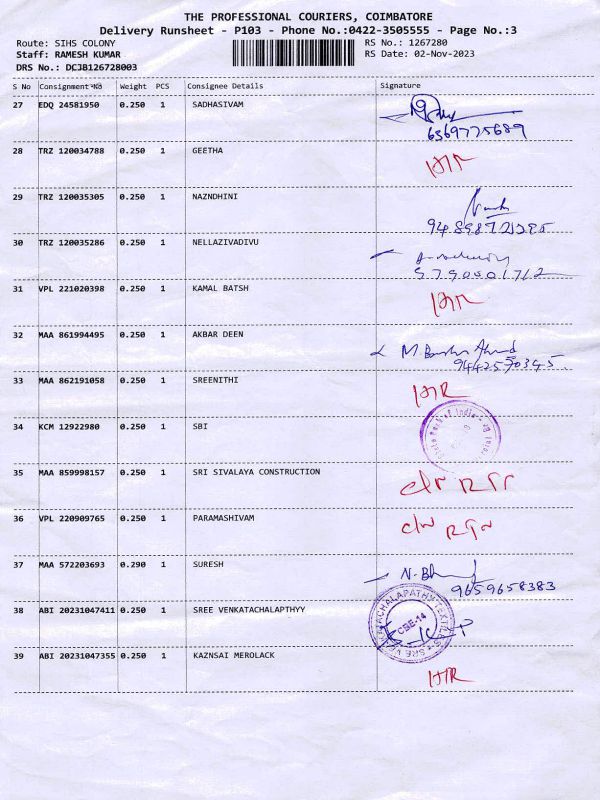 THE PROFESSIONAL COURIERS, COIMBATORE
Delivery Runsheet - P103 - Phone No.:0422-3505555 - Page No.:3
Route: SIHS COLONY
RS No.: 1267280
Staff: RAMESH KUMAR
RS Date: 02-Nov-2023
DRS No.: DCJB126728003
S No Consignment No Weight PCS Consignee Details Signature
27 EDQ 24581950 0.250 1 SADHASIVAM
6369775689
28 TRZ 120034788 0.250 1 GEETHA
29 TRZ 120035305 0.250 1 NAZNDHINI
30 TRZ 120035286 0.250 1 NELLAZIVADIVU
31 VPL 221020398 0.250 1 KAMAL BATSH
32 MAA 861994495 0.250 1 AKBAR DEEN
9442570345
33 MAA 862191058 0.250 1 SREENITHI
34 KCM 12922980 0.250 1 SBI
State Bank of India
35 MAA 859998157 0.250 1 SRI SIVALAYA CONSTRUCTION
36 VPL 220909765 0.250 1 PARAMASHIVAM
37 MAA 572203693 0.290 1 SURESH
9659658383
38 ABI 20231047411 0.250 1 SREE VENKATACHALAPTHYY
CBE-14
39 ABI 20231047355 0.250 1 KAZNSAI MEROLACK